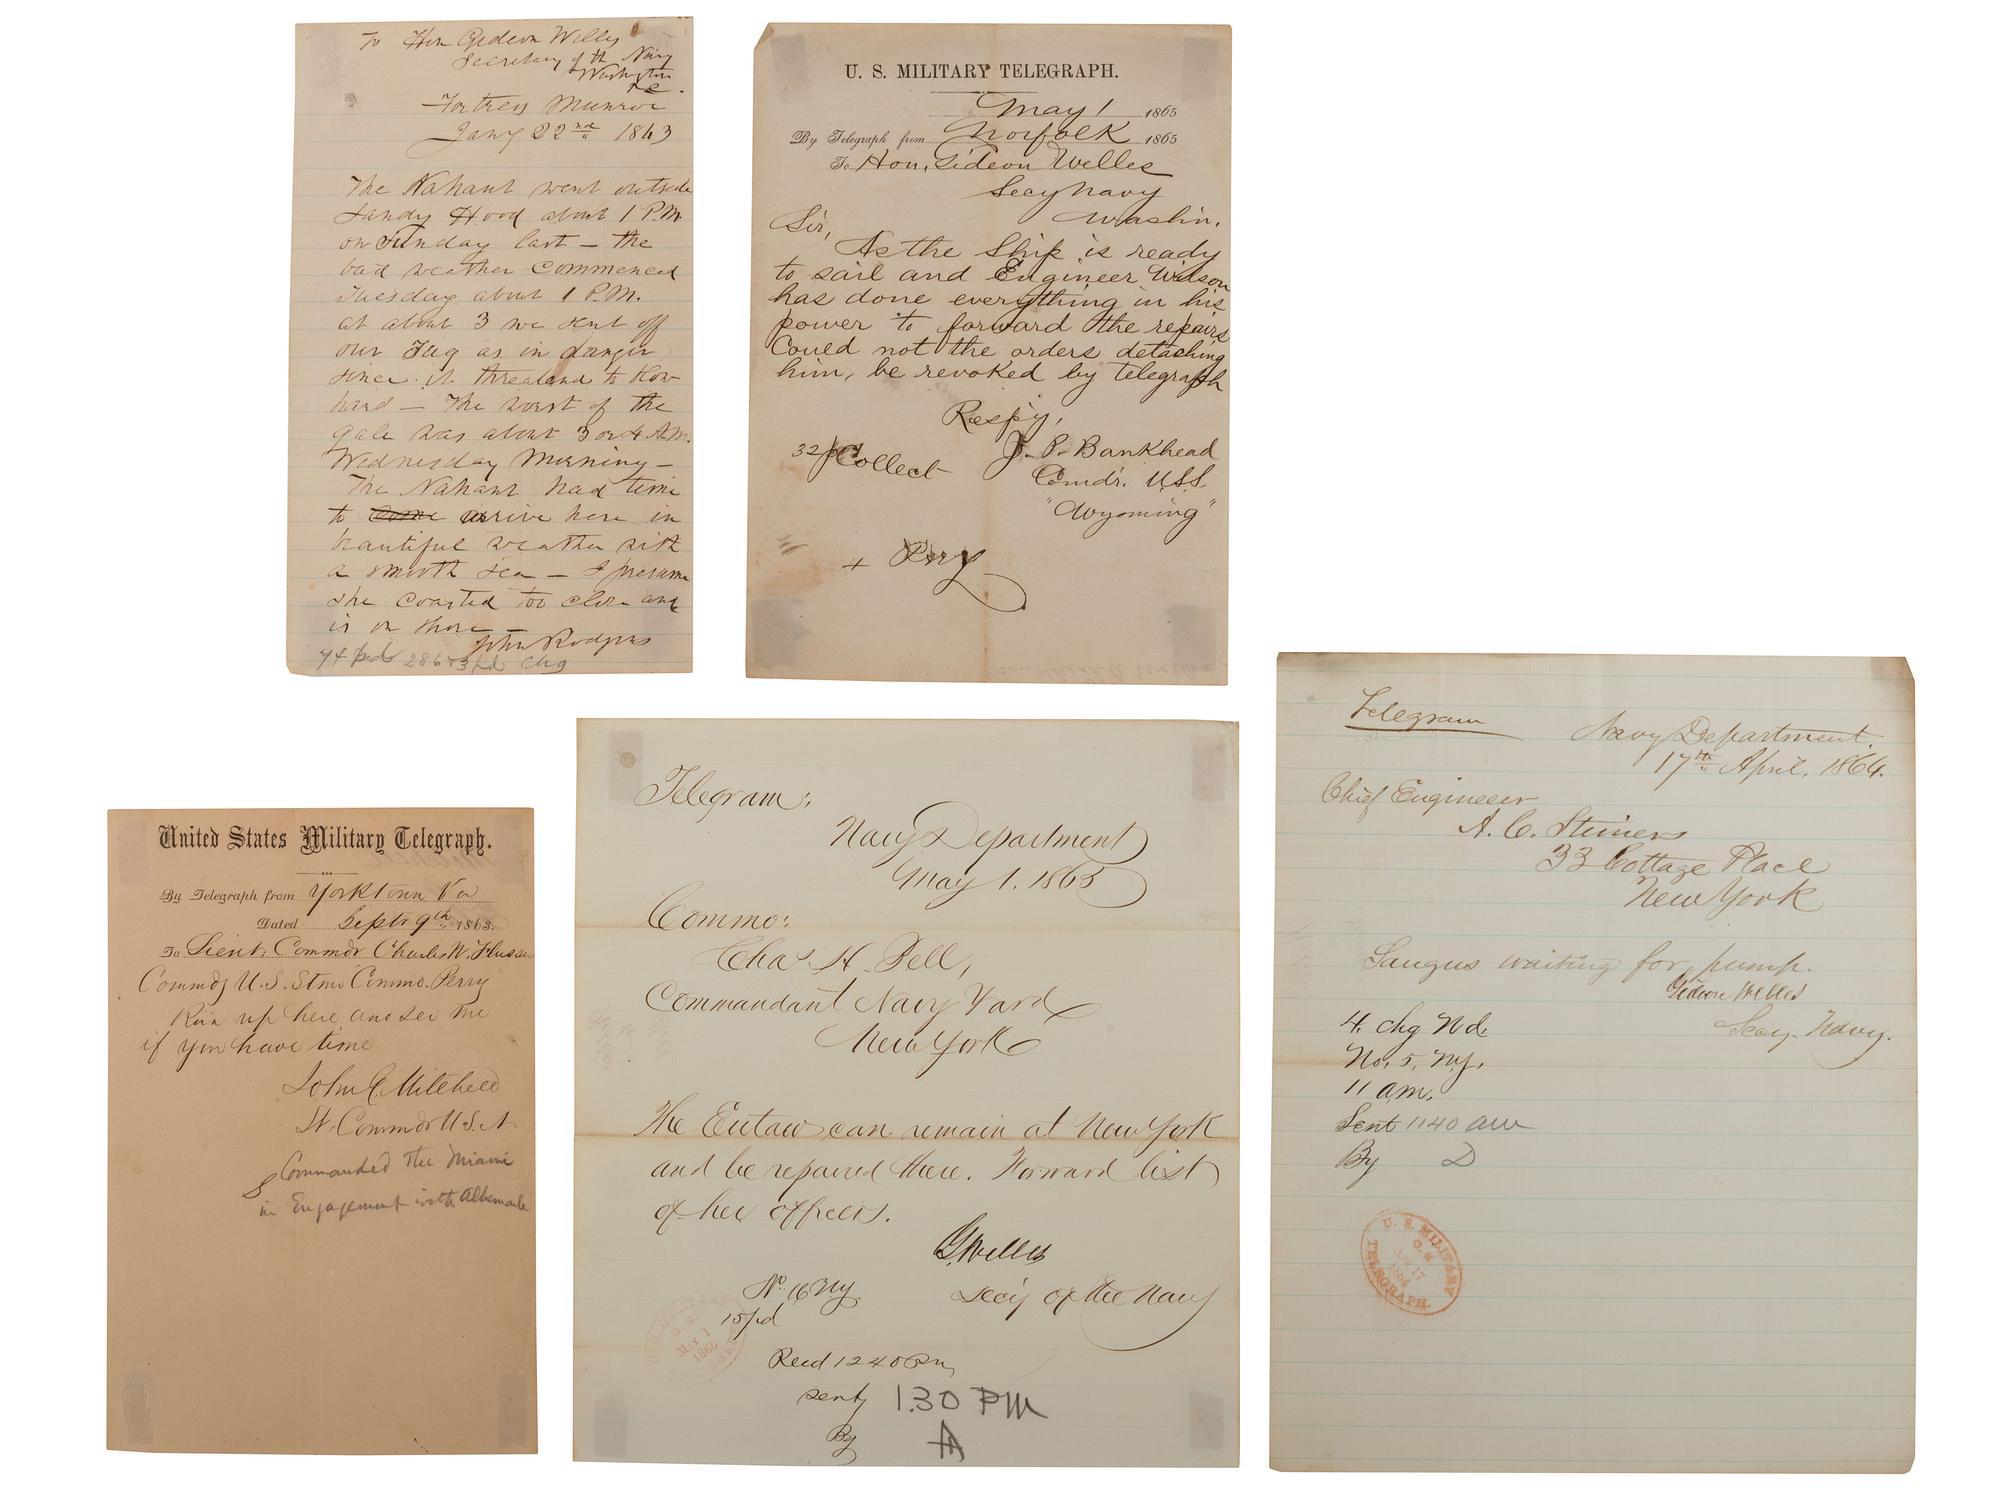 To Hon Gideon Willes
Secretary of the Navy
Washington
Fortress Munroe
Jany 22nd 1863
The Nahant went outside
Sandy Hood about 1 P.M.
on Sunday last — the
bad weather commenced
Tuesday about 1 P.M.
at about 3 we sent off
our Tug as in danger
since it threatened to blow
hard — The worst of the
gale was about 3 or 4 A.M.
Wednesday Morning —
The Nahant had time
to come arrive here in
beautiful weather with
a smooth sea — I presume
she coasted too close and
is on shore —
John Rodgers
74 pd 286 chg
U. S. MILITARY TELEGRAPH.
May 1 1865
By Telegraph from Norfolk 1865
To Hon, Gideon Welles
Secy Navy
Washn.
Sir,
As the Ship is ready
to sail and Engineer Wilson
has done everything in his
power to forward the repairs
Could not the orders detaching
him, be revoked by telegraph
Respy,
32/ Collect J. P. Bankhead
Comdr. U.S.S.
"Wyoming"
+
United States Military Telegraph.
By Telegraph from Yorktown Va
Dated Septr 9th 1863.
To Lieut: Commdr Charles W. Flusser
Commdg U.S. Stmr Commo. Perry"
Run up here and see me
if you have time
John G. Mitchell
Lt. Commdr U.S.N
Commanded The Miami
in Engagement with Albemarle
Telegram:
Navy Department
May 1. 1865
Commo:
Chas H. Bell,
Commandant Navy Yard
New York
The Eutaw can remain at New York
and be repaired there. Forward list
of her officers.
G. Welles
Secy of the Navy
No. 16 NY
15 pd
Recd 12 40 Pm
sent 1.30 PM
By A
MAY 1
1865
Telegram
Navy Department.
17th April, 1864.
Chief Engineer
A. C. Stimers
33 Cottage Place
New York
Saugus waiting for pump.
Gideon Welles
Secy. Navy.
4. chg N d.
No. 5, NY.
11 am.
Sent 11 40 am
By D
U. S. MILITARY
TELEGRAPH.
APR 17
1864